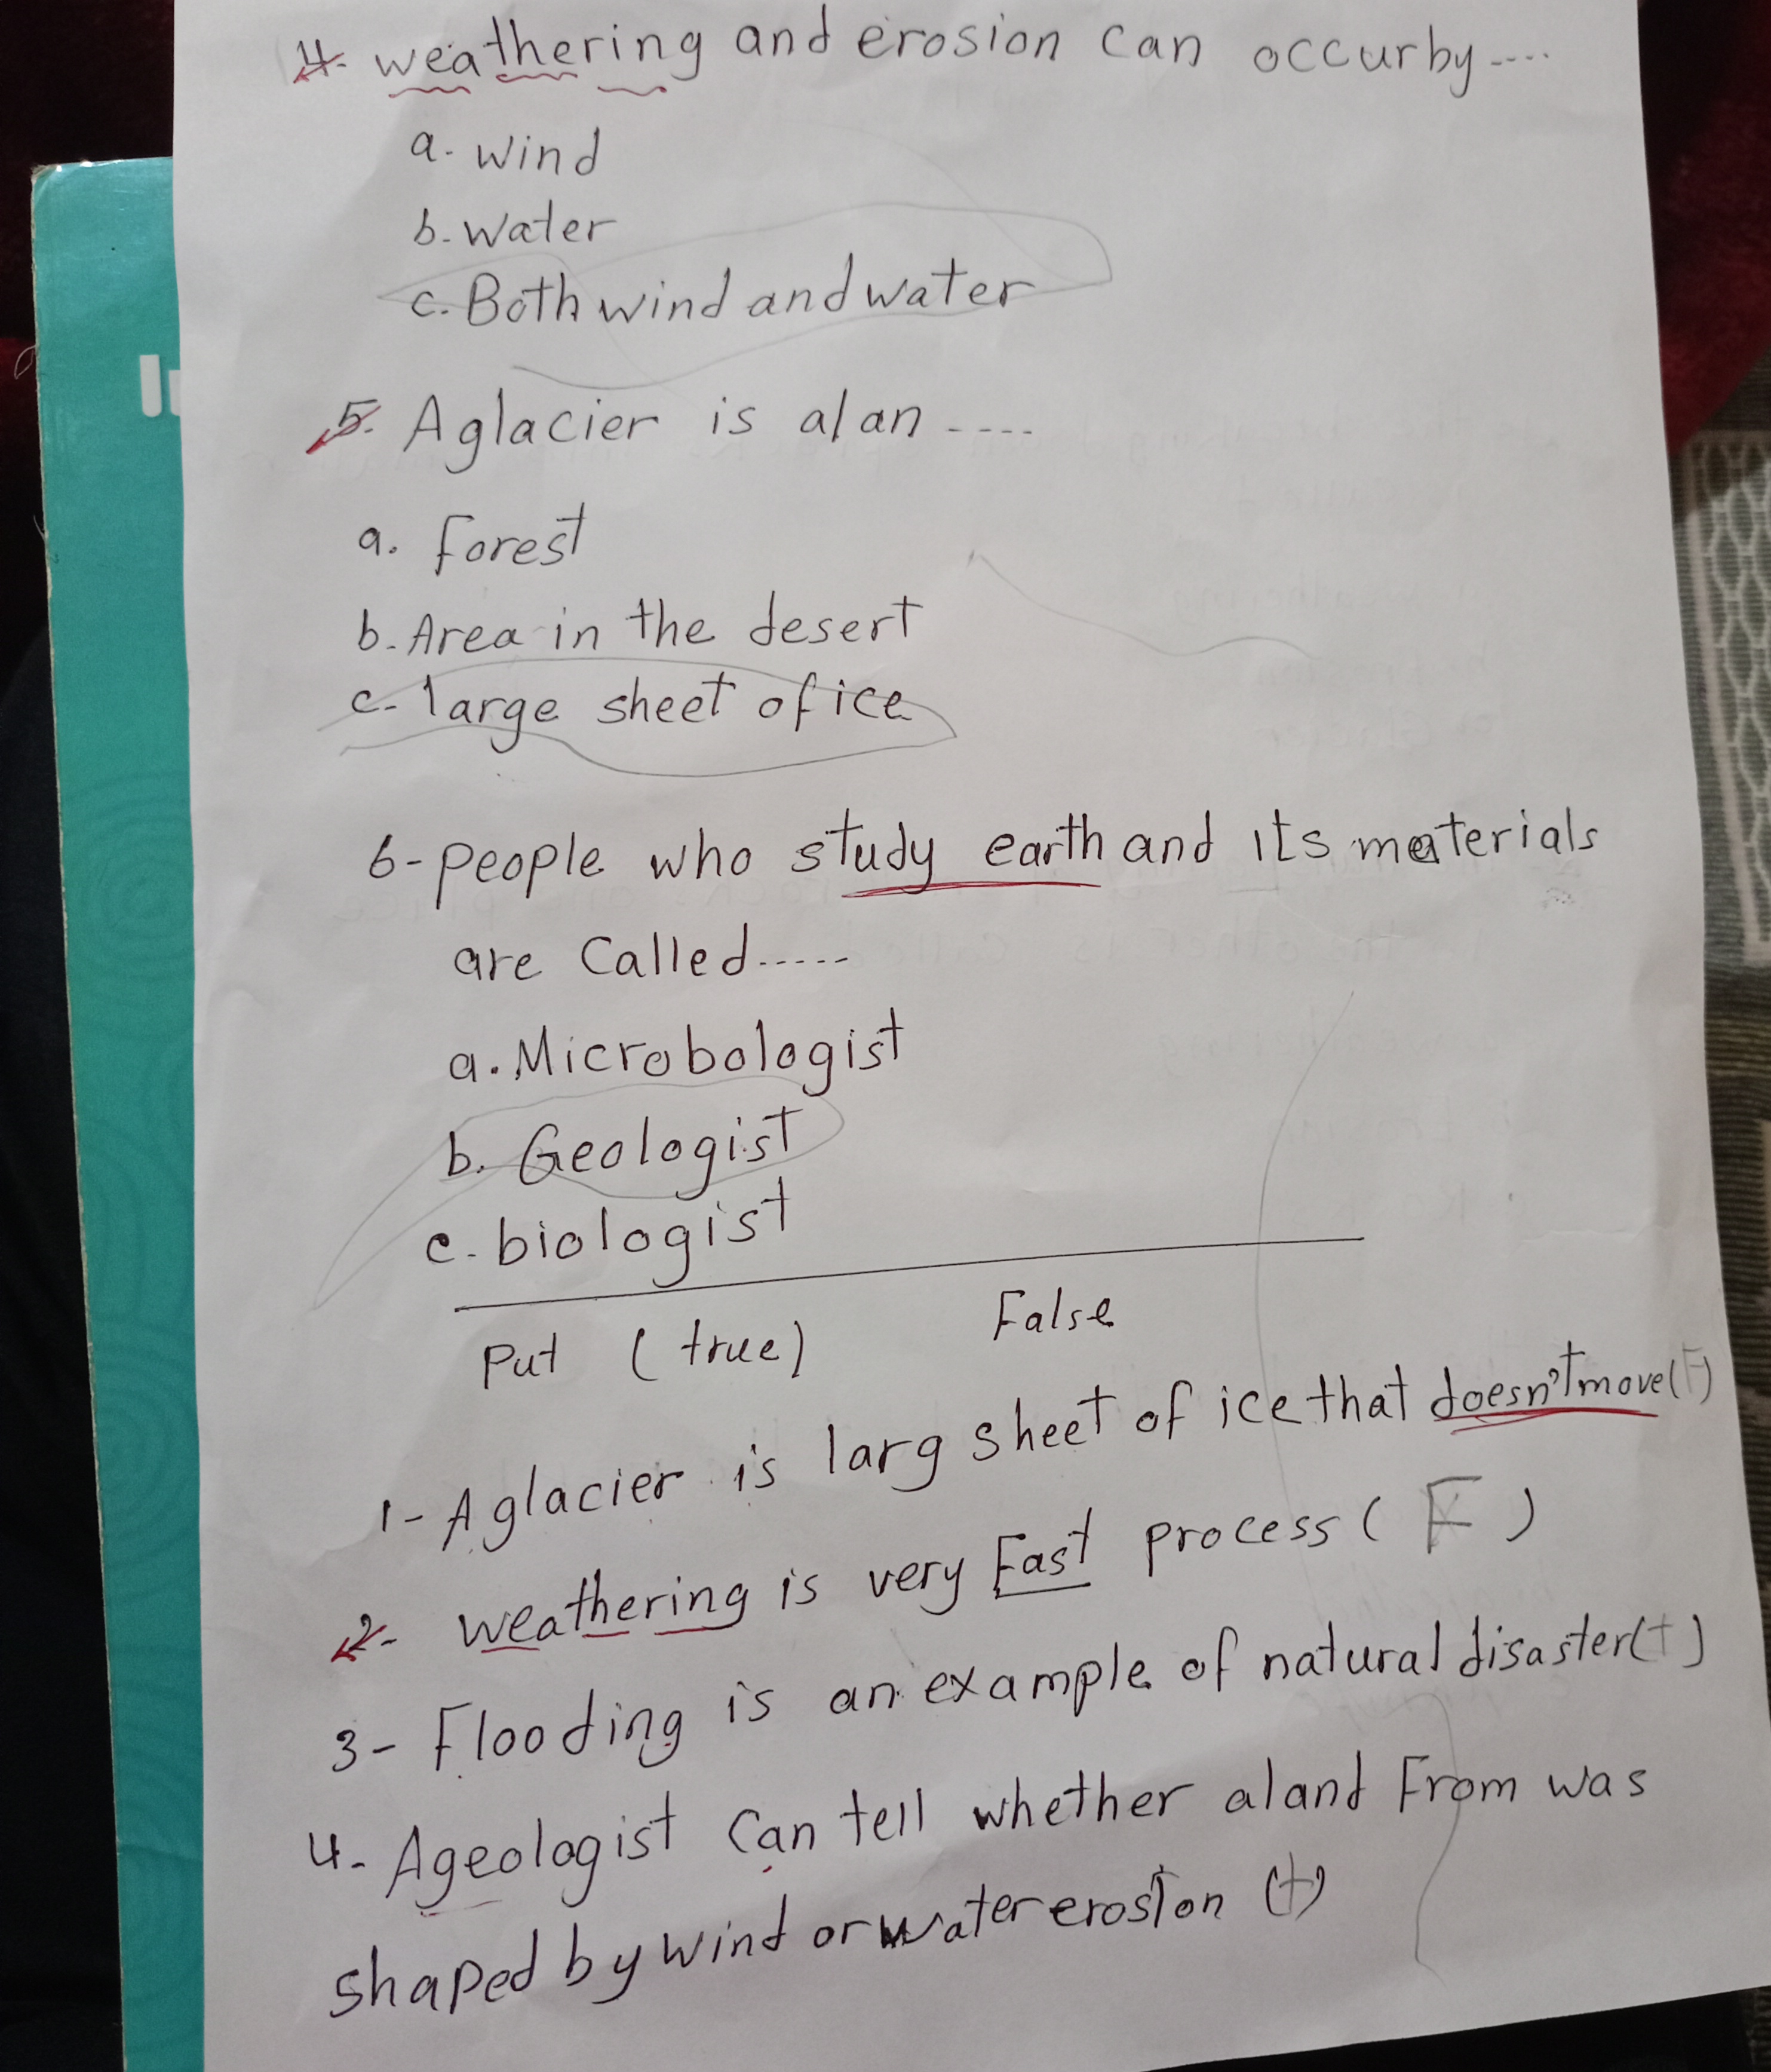 4. weathering and erosion can occurby....
a. wind
b. water
c. Both wind and water
5. A glacier is a/an ----
a. Forest
b. Area in the desert
c- large sheet of ice
6- people who study earth and its materials
are Called.....
a. Microbologist
b. Geologist
c. biologist
Put (true) False
1- A glacier is larg sheet of ice that doesn't move (F)
2- weathering is very Fast process ( F )
3- Flooding is an example of natural disaster (t)
4- Ageologist Can tell whether aland From was
shaped by wind or water erosion (t)